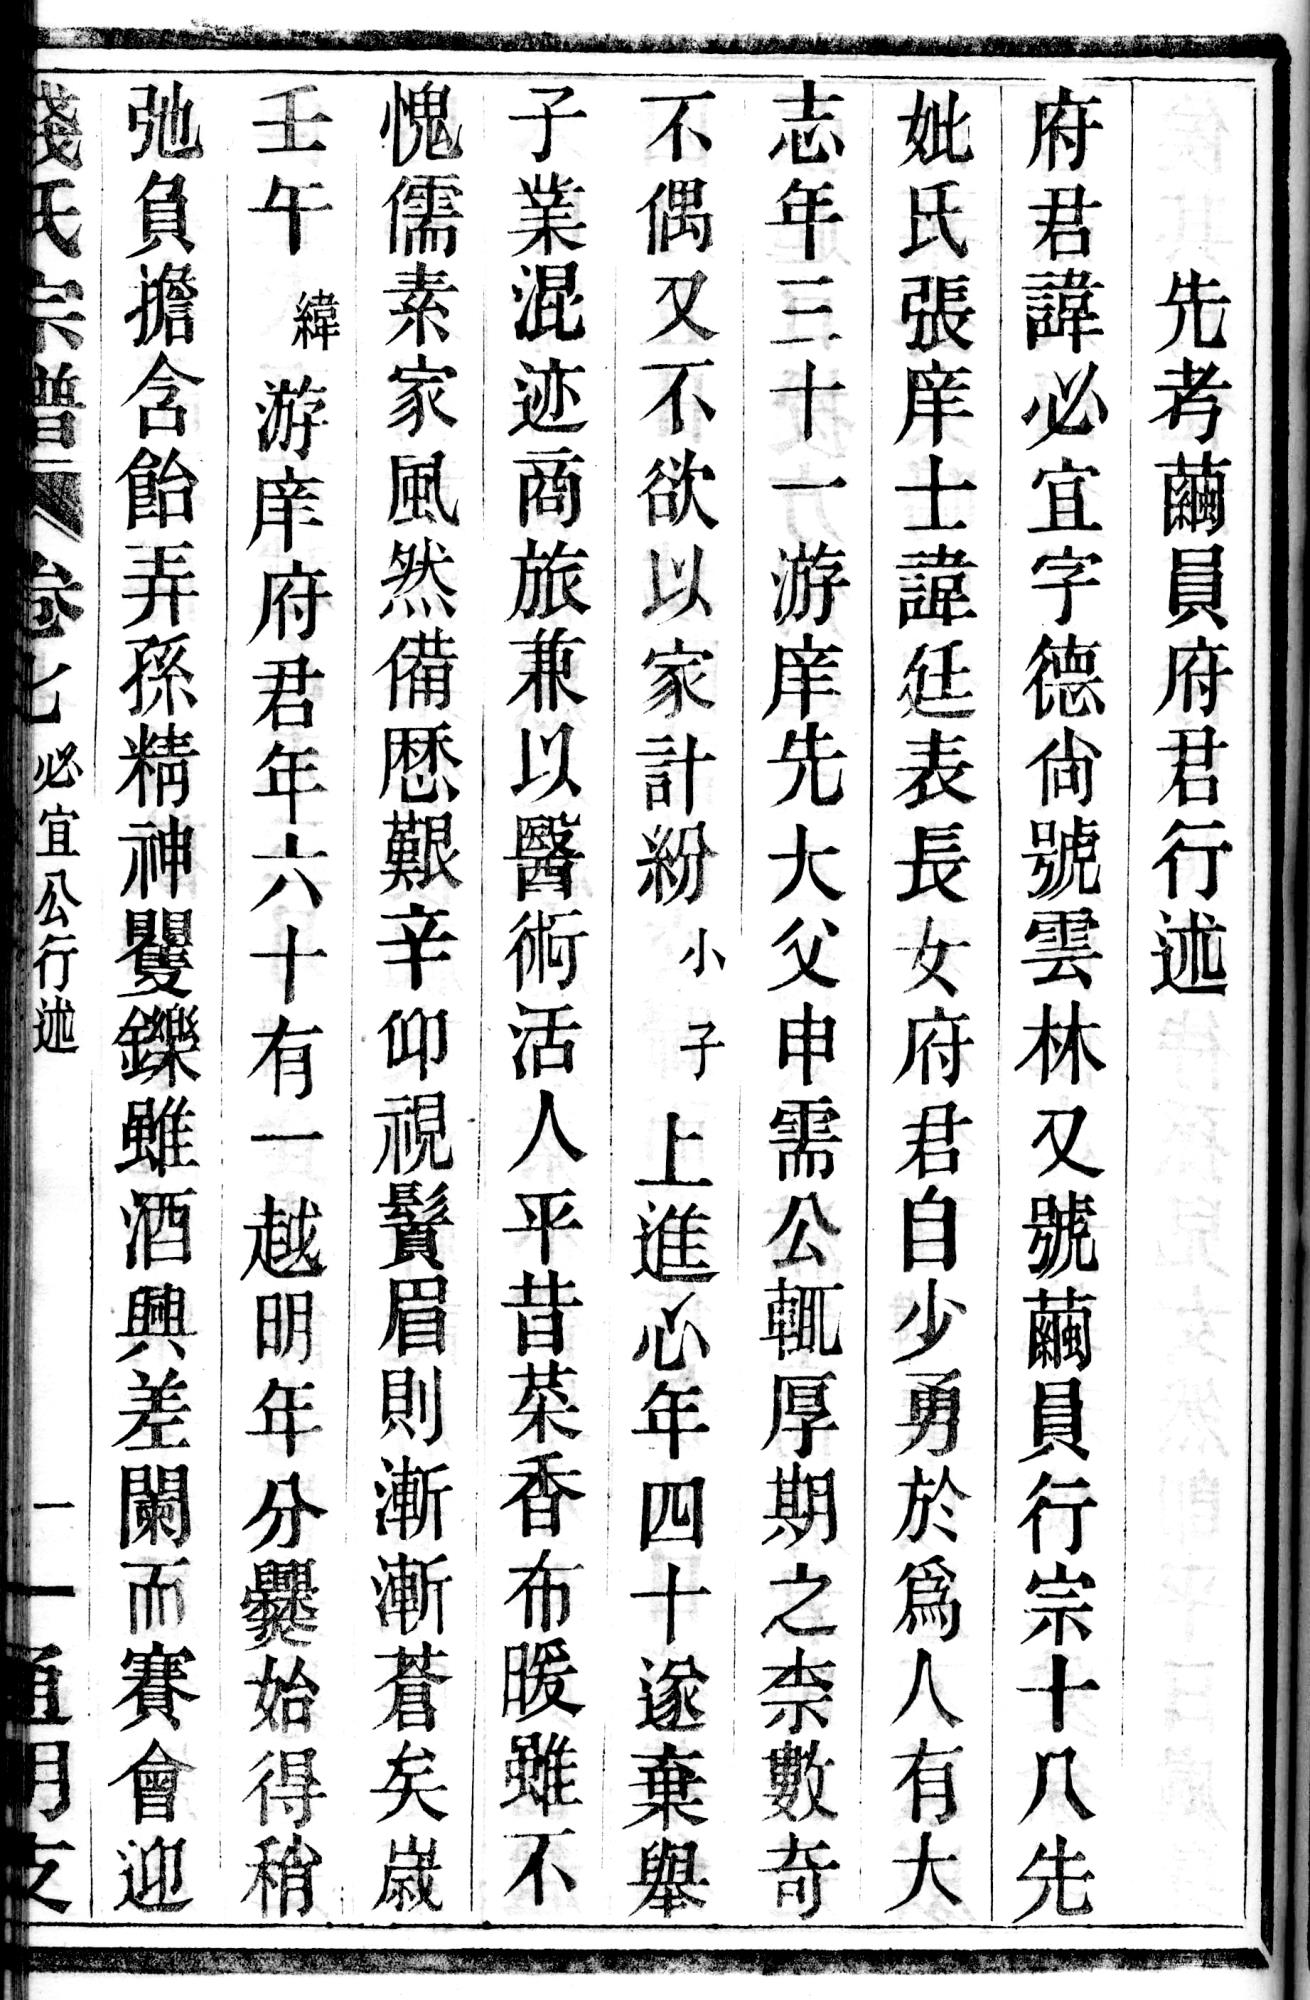 先考繭員府君行述
府君諱必宜字德尙號雲林又號繭員行宗十八先
妣氏張庠士諱廷表長女府君自少勇於爲人有大
志年三十一游庠先大父申需公輒厚期之柰數奇
不偶又不欲以家計紛小子上進心年四十遂棄舉
子業混迹商旅兼以醫術活人平昔菜香布暖雖不
愧儒素家風然備歷艱辛仰視鬢眉則漸漸蒼矣歲
壬午緯游庠府君年六十有一越明年分爨始得稍
弛負擔含飴弄孫精神矍鑠雖酒興差闌而賽會迎
錢氏宗譜 卷七 必宜公行述 一 通明支